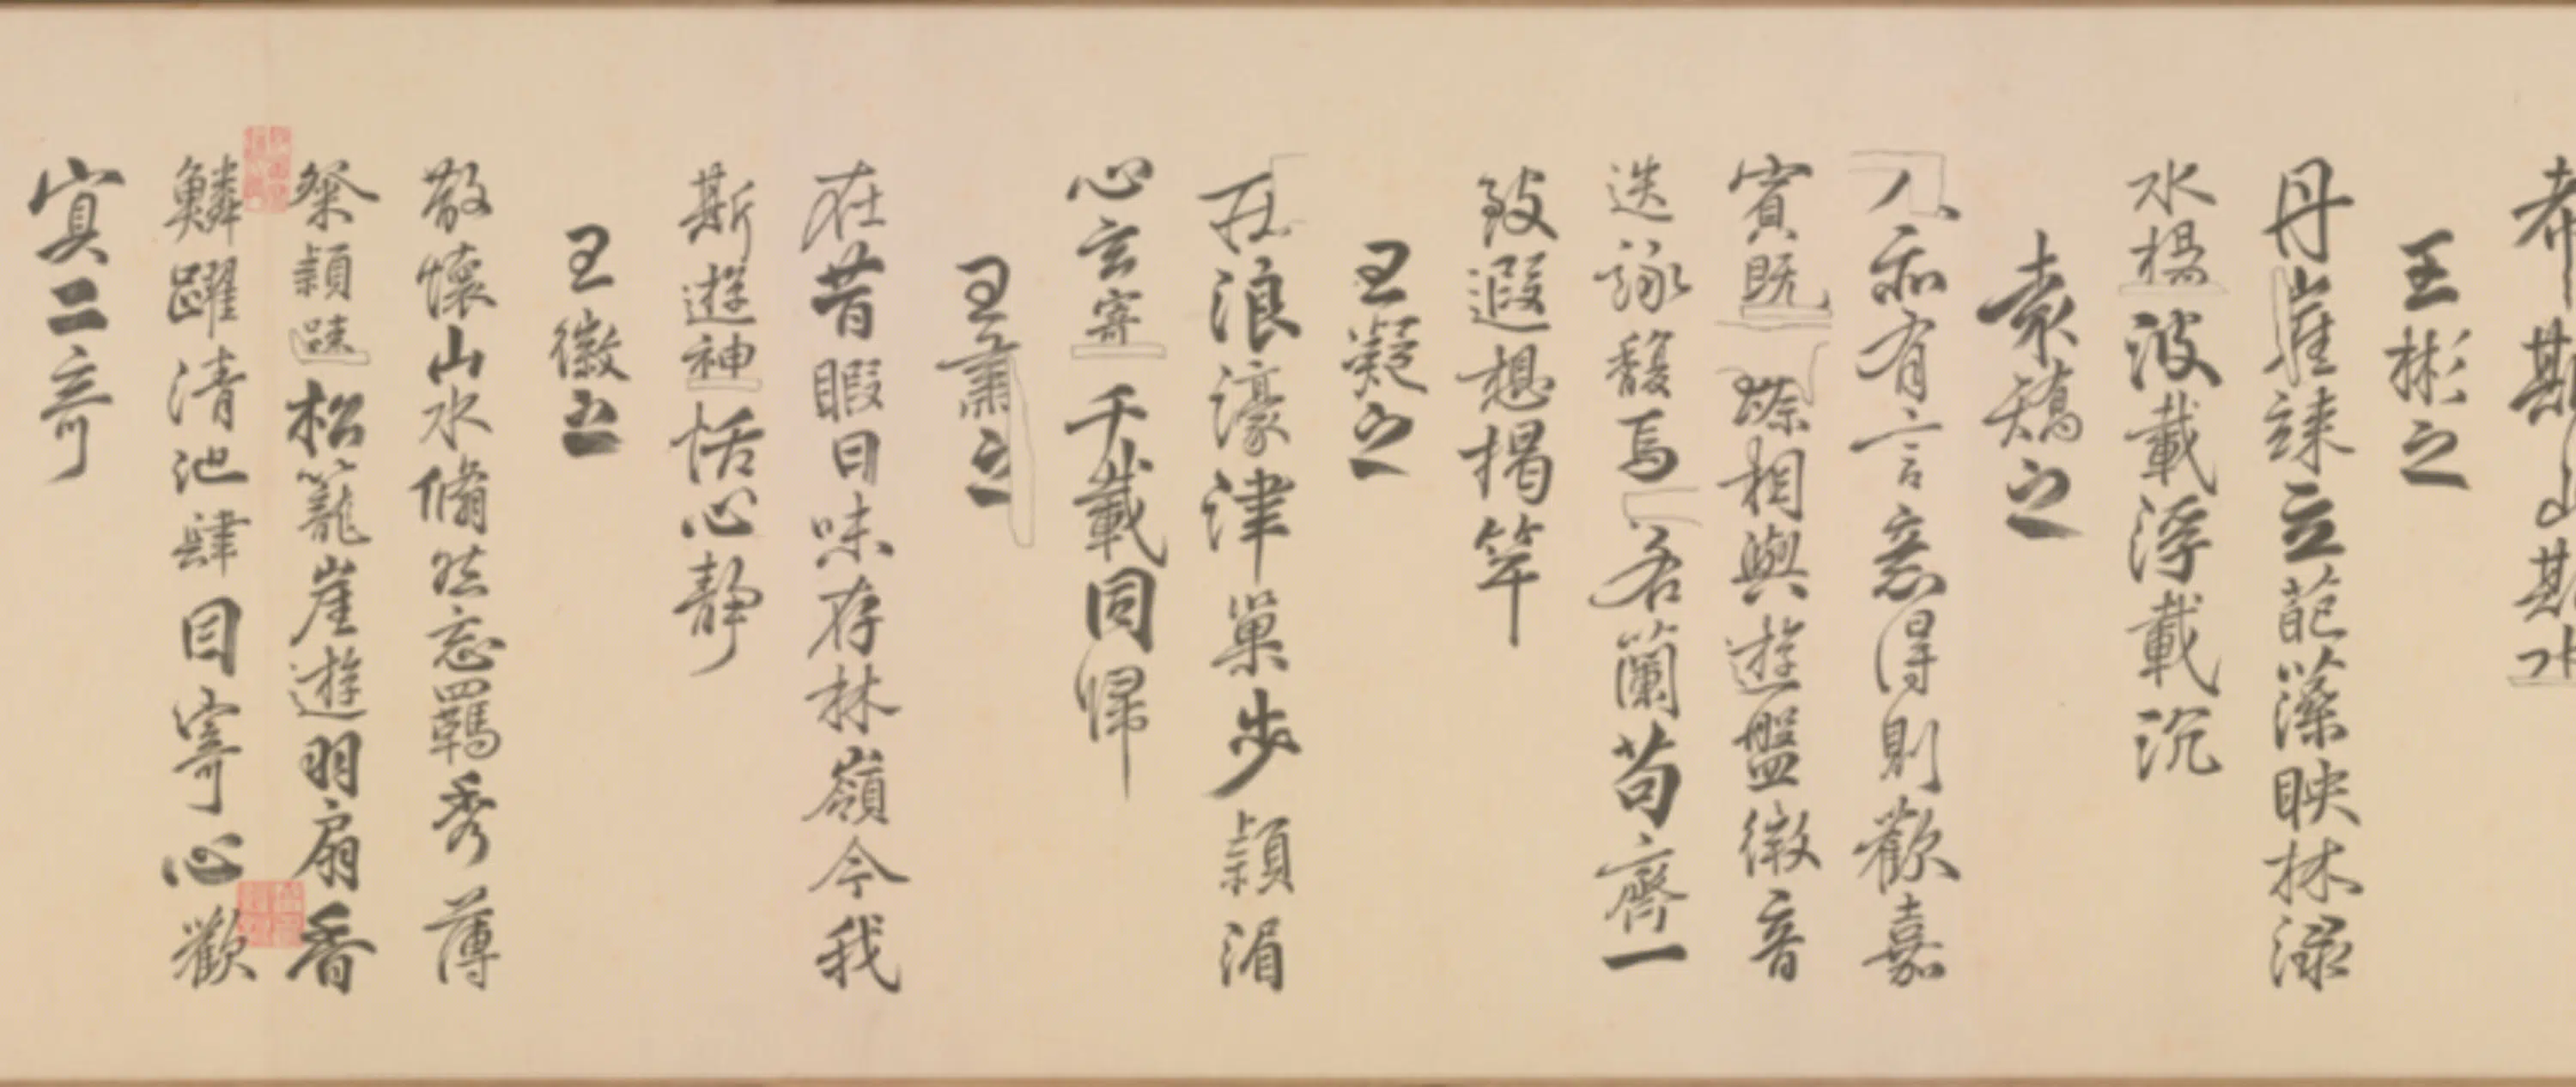 希斯山斯水
王彬之
丹崖竦立葩藻映林渌
水揚波載浮載沉
袁矯之
人亦有言意得則歡嘉
賓既臻相與遊盤微音
迭詠馥焉若蘭苟齊一
致遐想揭竿
王凝之
莊浪濠津巢步潁湄
心玄寄千載同歸
王肅之
在昔暇日味存林嶺今我
斯遊神恬心靜
王徽之
散懷山水翛然忘羈秀薄
粲穎踈松籠崖遊羽扇香
鱗躍清池肆目寄心歡
寘二奇